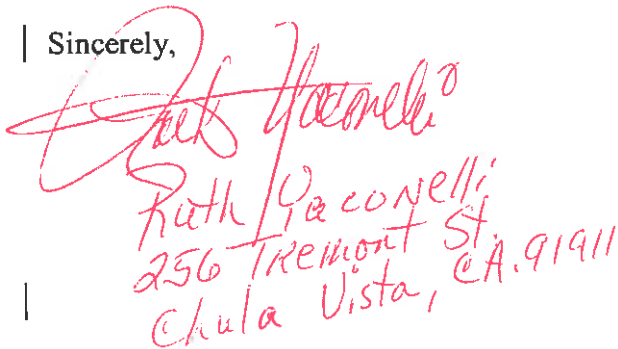 Sincerely,
Ruth Yaconelli
Ruth Yaconelli
256 Tremont St.
Chula Vista, CA. 91911